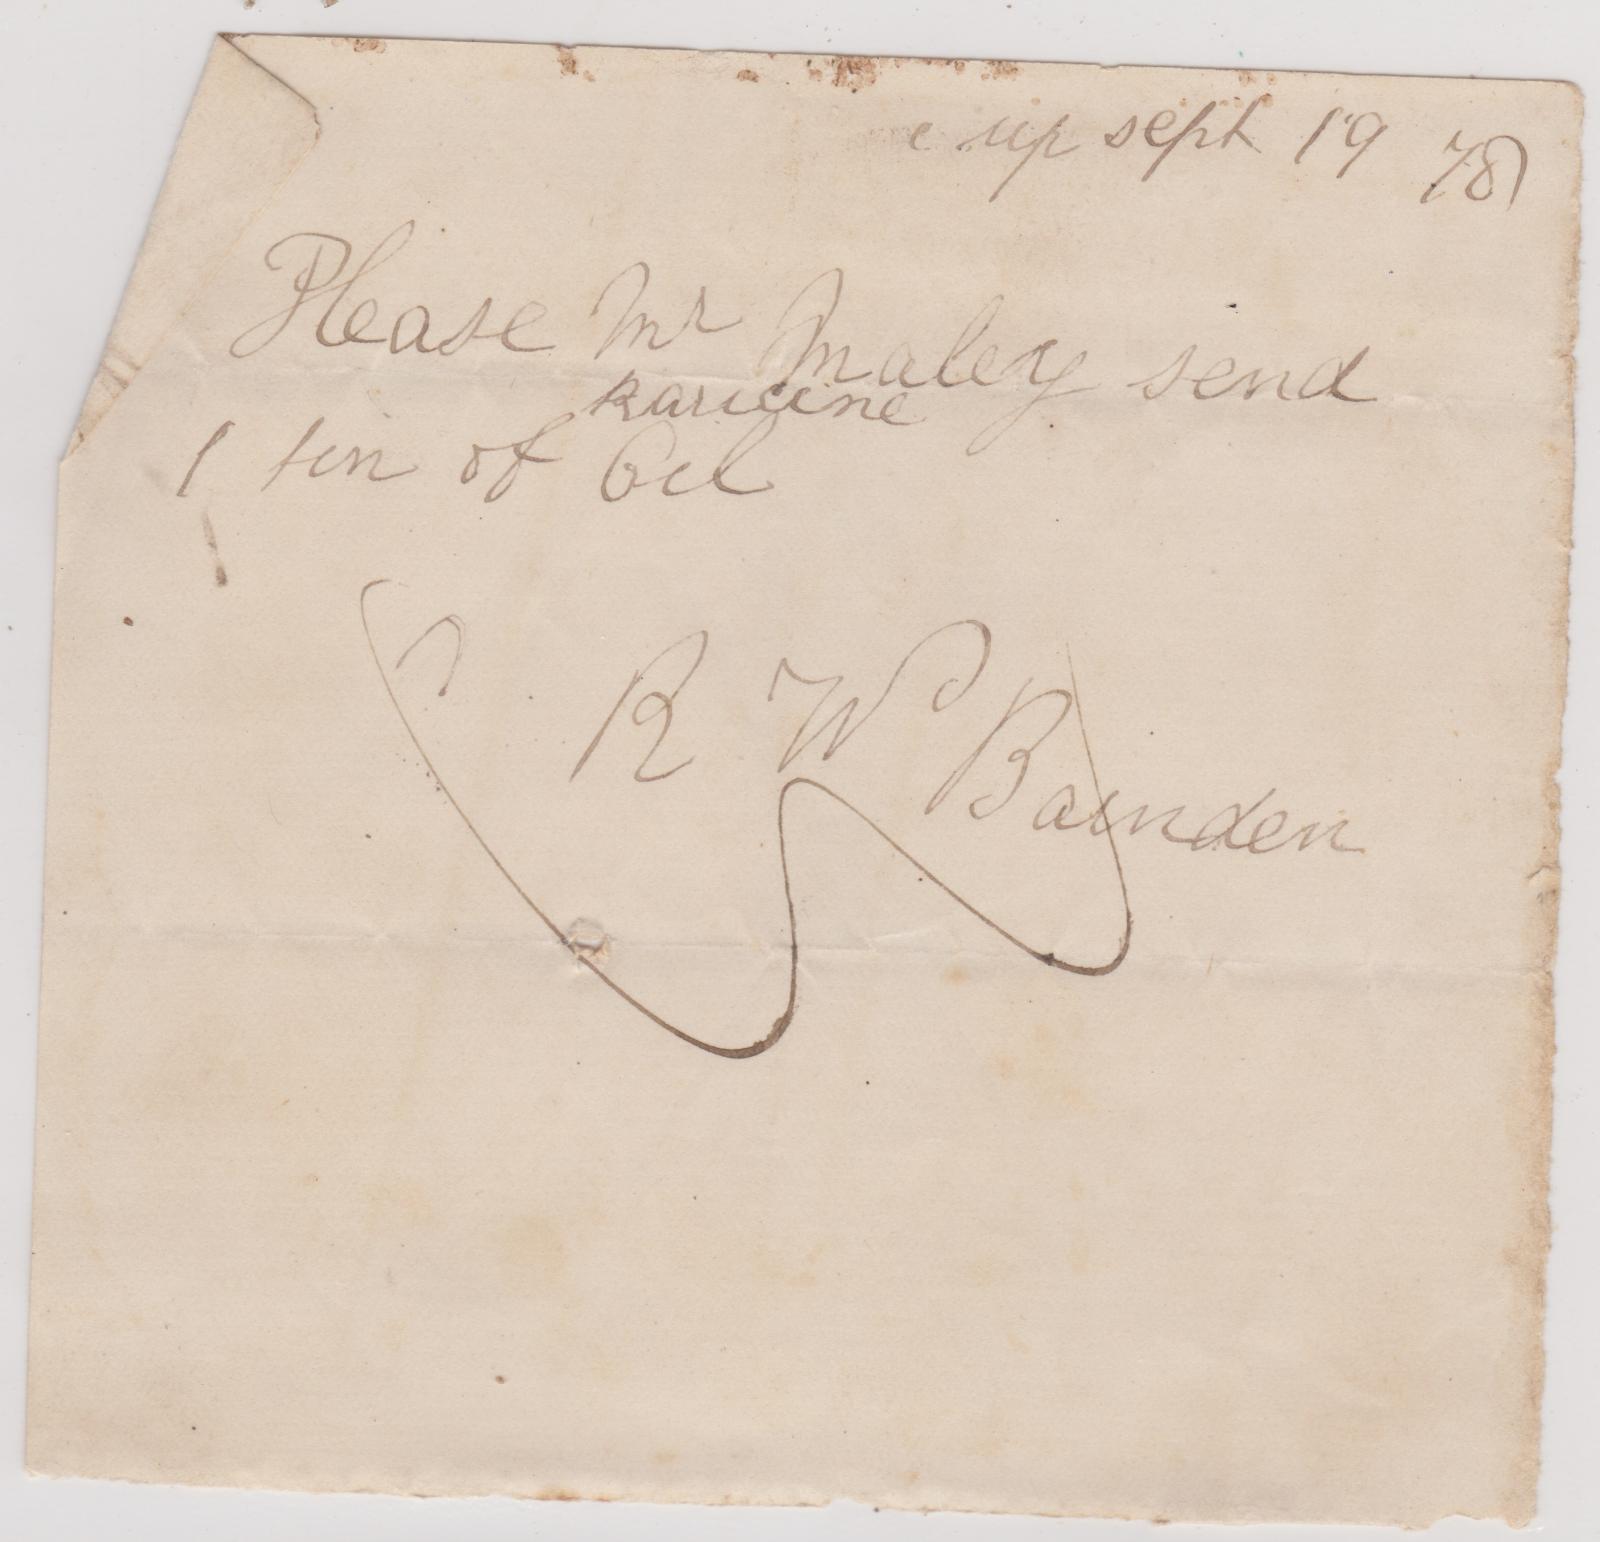 up sept 19 78
Please Mr Maley send
karicine
1 tin of Oil
R W Bainden